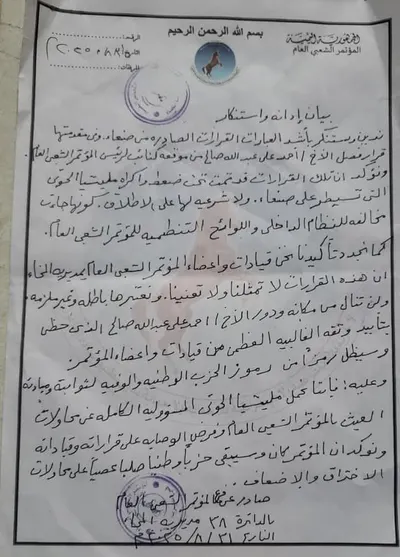 بسم الله الرحمن الرحيم
الجمهورية اليمنية
المؤتمر الشعبي العام
التاريخ
المرفقات
بيان إدانة واستنكار
ندين ونستنكر بأشد العبارات القرارات الصادره من صنعاء وفي مقدمتها
قرار فصل الأخ / احمد علي عبدالله صالح من موقعه كنائب لرئيس المؤتمر الشعبي العام.
ونؤكد ان تلك القرارات قد تمت تحت ضغط واكراه مليشيا الحوثي
التي تسيطر على صنعاء. ولا شرعيه لها على الاطلاق. كونها جاءت
مخالفه للنظام الداخلي واللوائح التنظيميه للمؤتمر الشعبي العام.
كما نجدد تأكيدنا نحن قيادات واعضاء المؤتمر الشعبي العام بمديرية المخاء
ان هذه القرارات لا تمثلنا ولا تعنينا. ونعتبرها باطله وغير ملزمه.
ولن تنال من مكانه ودور الأخ / احمد علي عبدالله صالح الذي حظي
بتأييد وثقه الغالبيه العظمى من قيادات واعضاء المؤتمر
وسيظل رمزاً من رموز الحزب الوطنيه والوفيه لثوابته ومبادئه
وعليه: فإننا نحمل مليشيا الحوثي المسؤوليه الكامله عن محاولات
العبث بالمؤتمر الشعبي العام وفرض الوصايه على قراراته وقياداته
ونؤكد ان المؤتمر كان وسيبقى حزباً وطنياً صلباً عصياً على محاولات
الاختراق والاضعاف..
صادر عن المؤتمر الشعبي العام
بالدائرة ٣٨ مديرية المخاء
التاريخ ٣١ / ٨ / ٢٠٢٥م